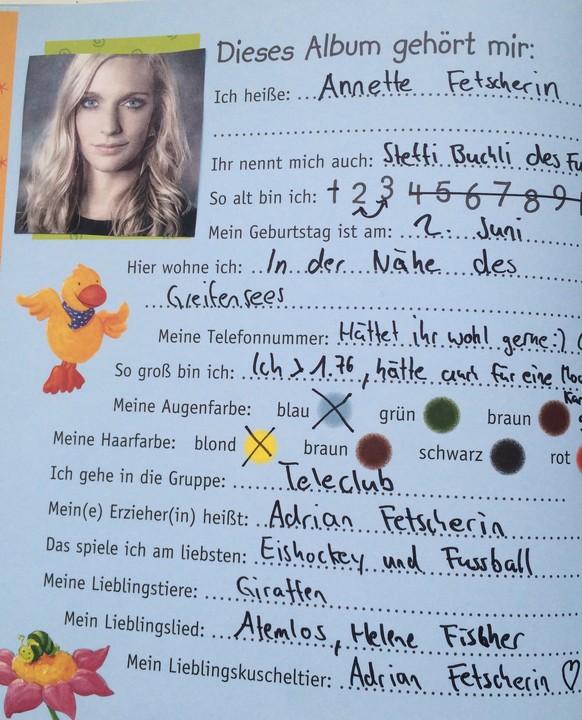 Dieses Album gehört mir:
Ich heiße: Annette Fetscherin
Ihr nennt mich auch: Steffi Buchli des Fu
So alt bin ich: 1 2 3 4 5 6 7 8 9
Mein Geburtstag ist am: 2. Juni
Hier wohne ich: In der Nähe des
Greifensees
Meine Telefonnummer: Hättet ihr wohl gerne:)
So groß bin ich: Ich > 1.76, hätte auch für eine
Meine Augenfarbe: blau grün braun
Meine Haarfarbe: blond braun schwarz rot
Ich gehe in die Gruppe: Teleclub
Mein(e) Erzieher(in) heißt: Adrian Fetscherin
Das spiele ich am liebsten: Eishockey und Fussball
Meine Lieblingstiere: Giraffen
Mein Lieblingslied: Atemlos, Helene Fischer
Mein Lieblingskuscheltier: Adrian Fetscherin ♡